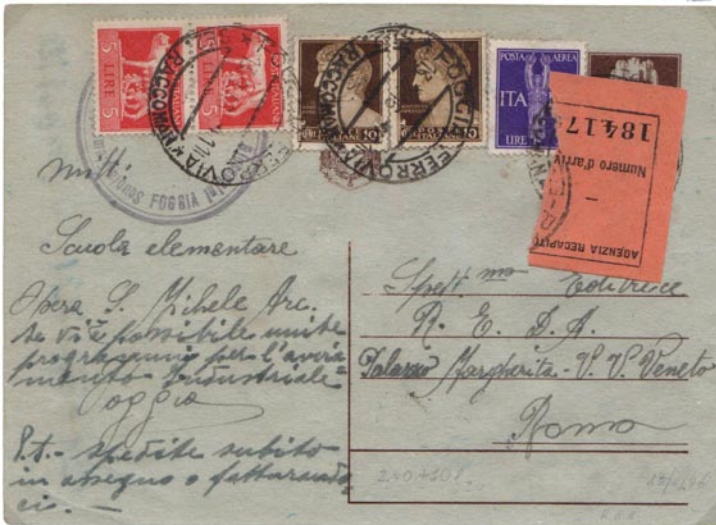 5 LIRE 5
5 LIRE 5
POSTE ITALIANE
10
10
POSTA AEREA
ITA
LIRE
FOGGIA FERROVIA
RACCOM
FOGGIA
AGENZIA RECAPITO
Numero d'arriv
18417
mitt:
Scuola elementare
Opera S. Michele Arc.
se vi è possibile unite
programmi per l'avvia
mento Industriale
Foggia
P.t.- spedite subito
in assegno o fatturando
ci.-
Spett ma Editrice
R. E. D. A.
Palazzo Margherita - V. V. Veneto
Roma